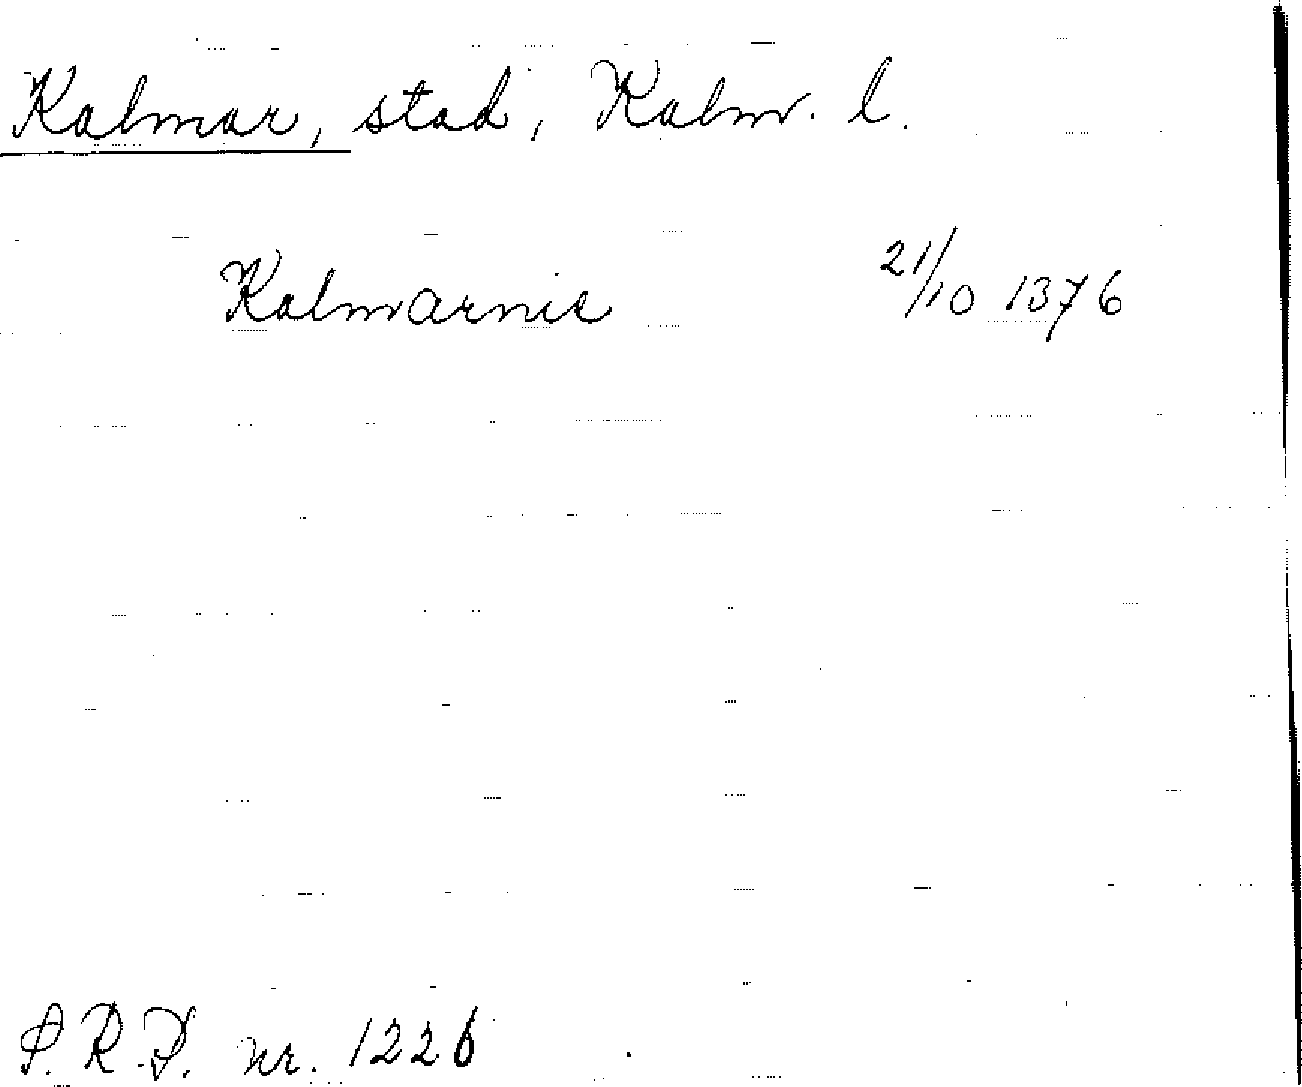 Kalmar, stad, Kalm. l.
Kalmarnis 21/10 1376
S.R.P. nr. 1226